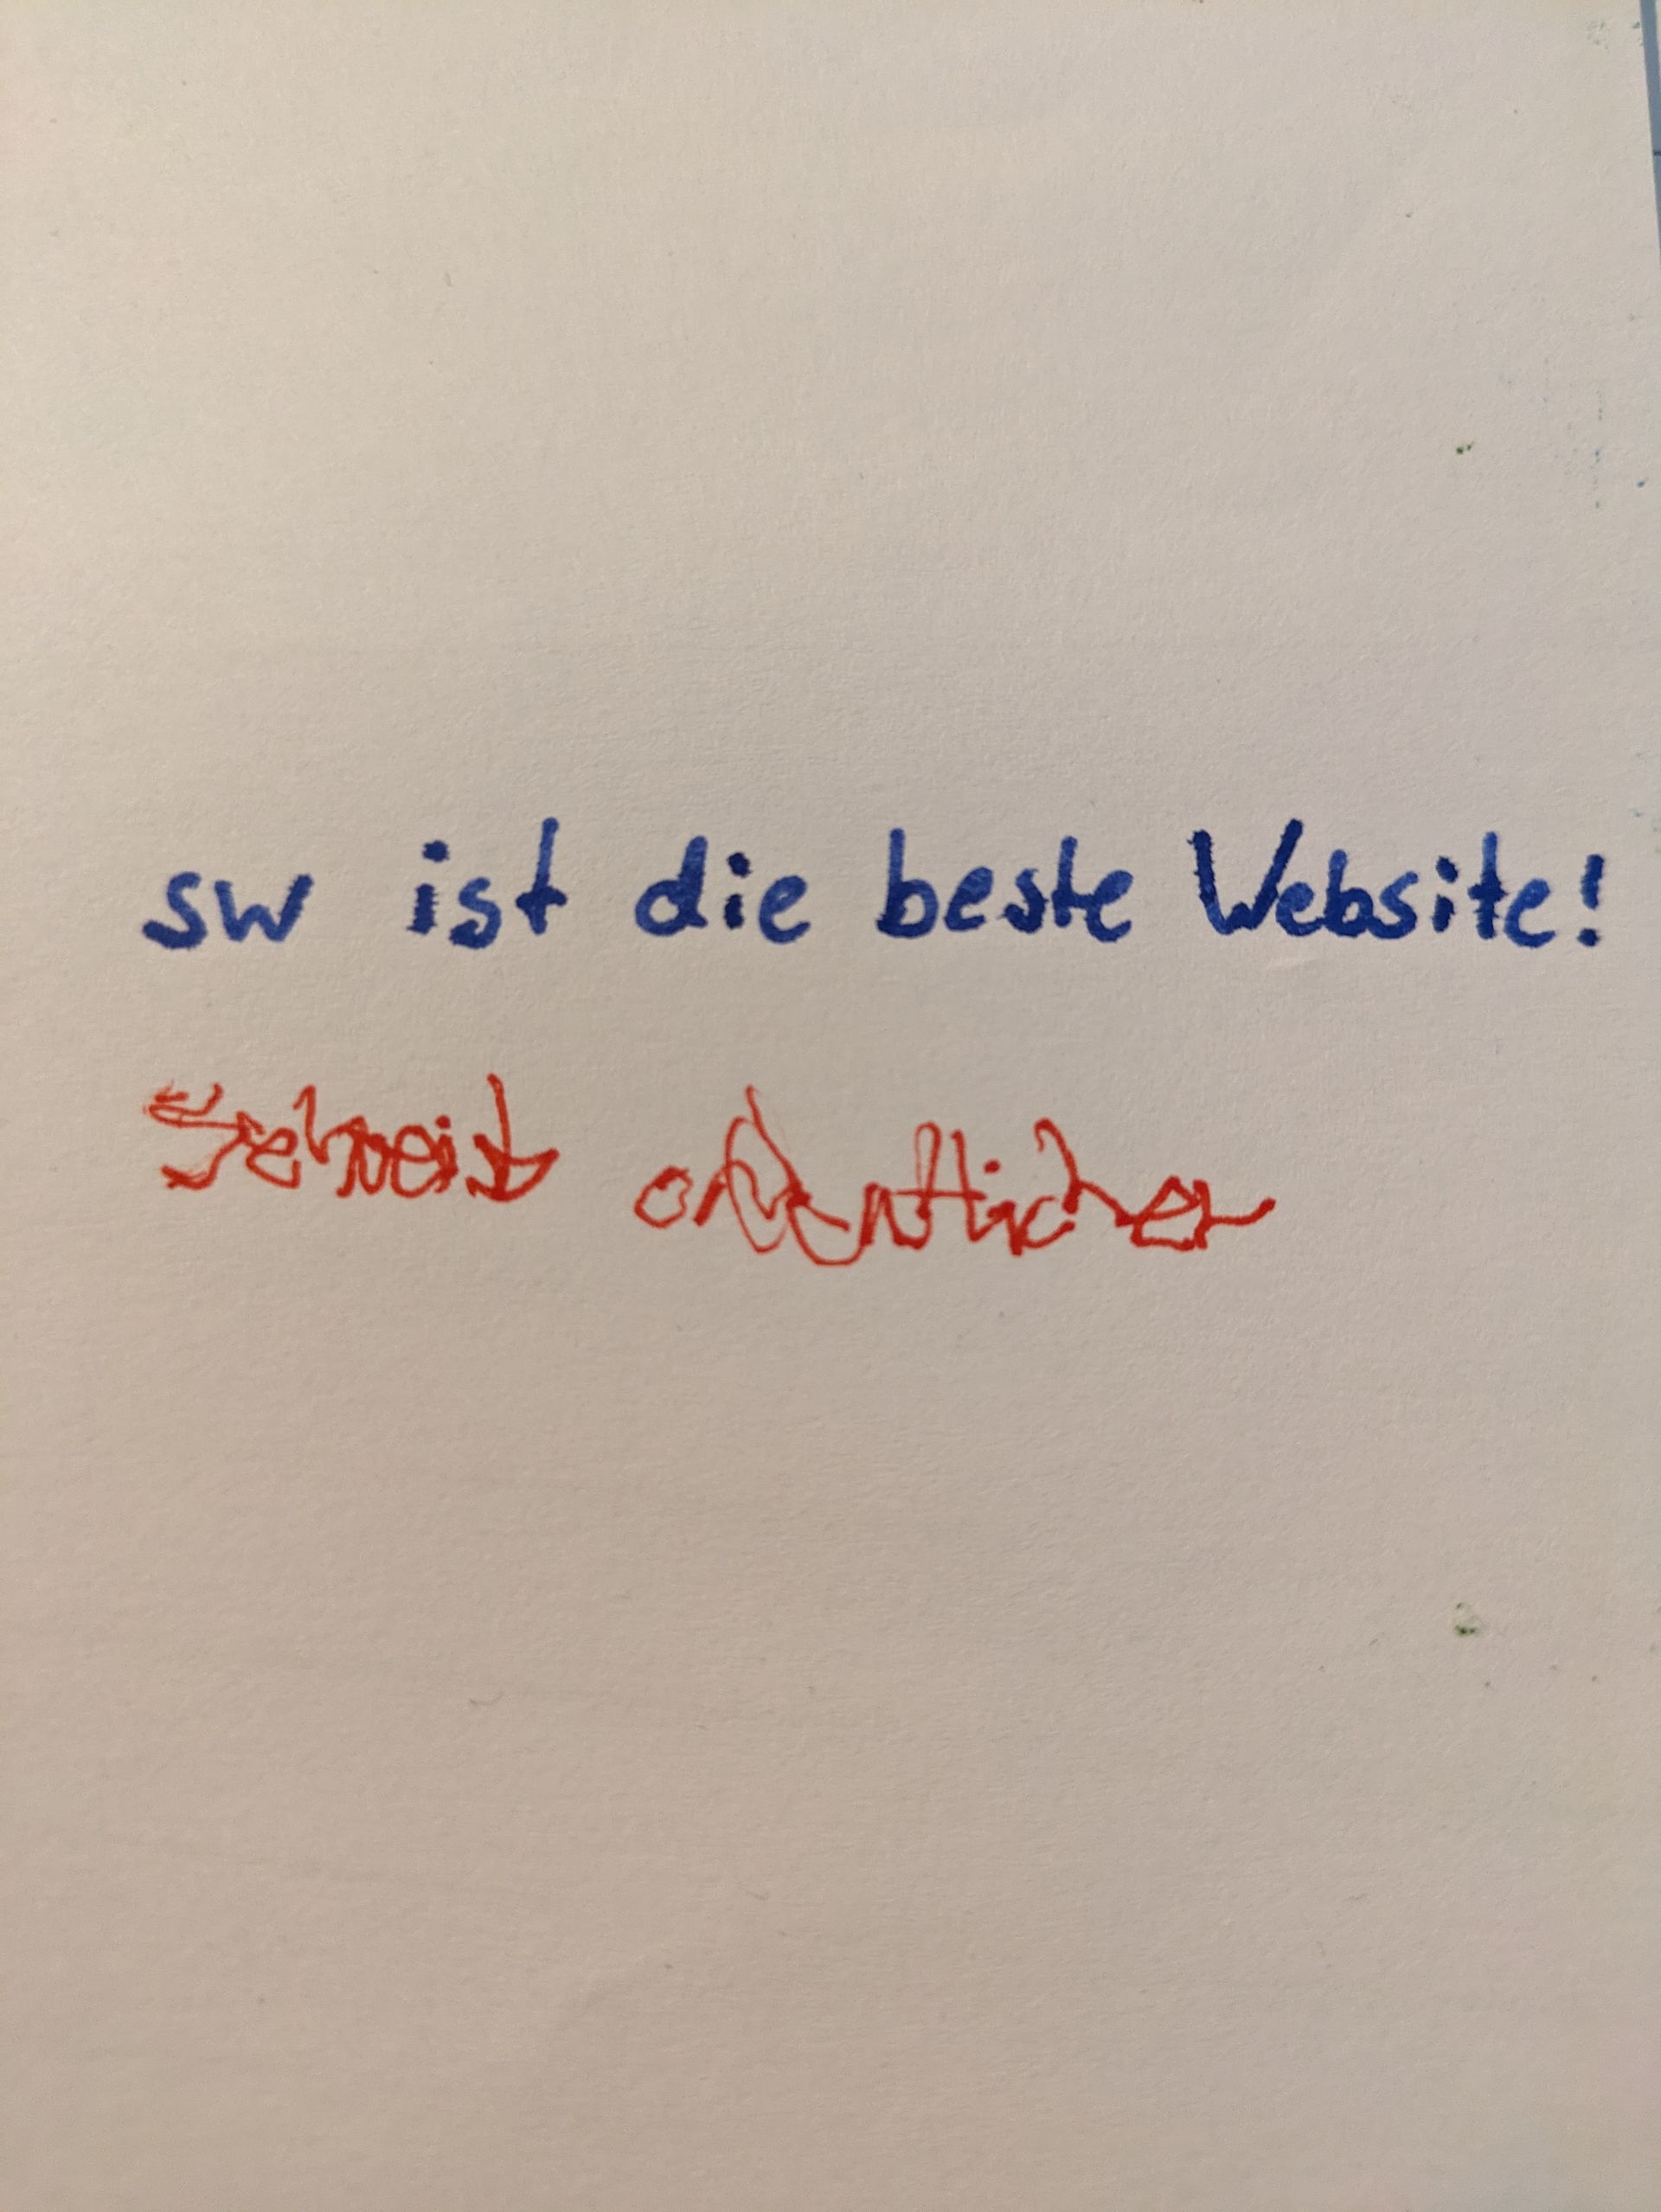 sw ist die beste Website!
Schreib ordentlicher